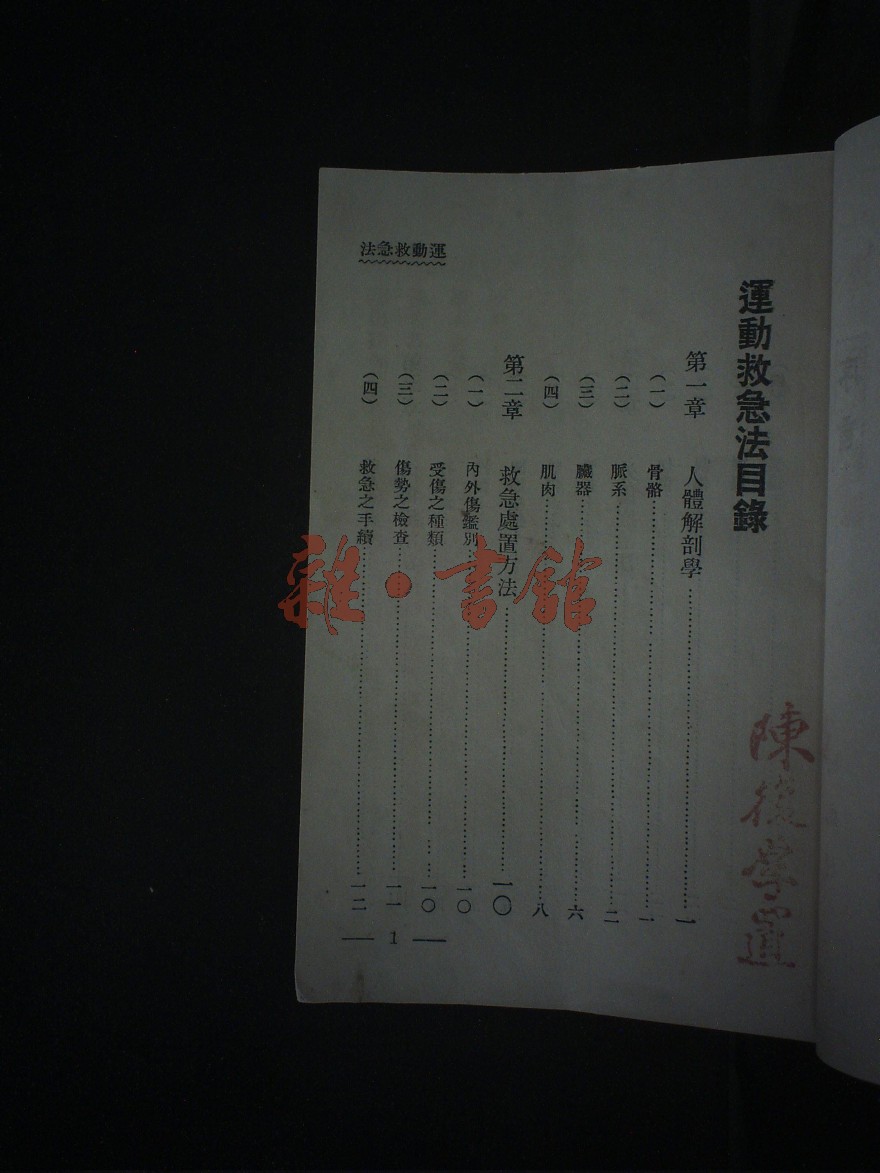 法急救動運
運動救急法目錄
第一章 人體解剖學……一
（一） 骨骼……一
（二） 脈系……二
（三） 臟器……六
（四） 肌肉……八
第二章 救急處置方法……一〇
（一） 內外傷鑑別……一〇
（二） 受傷之種類……一〇
（三） 傷勢之檢查……一一
（四） 救急之手續……一二
— 1 —
雜·書館